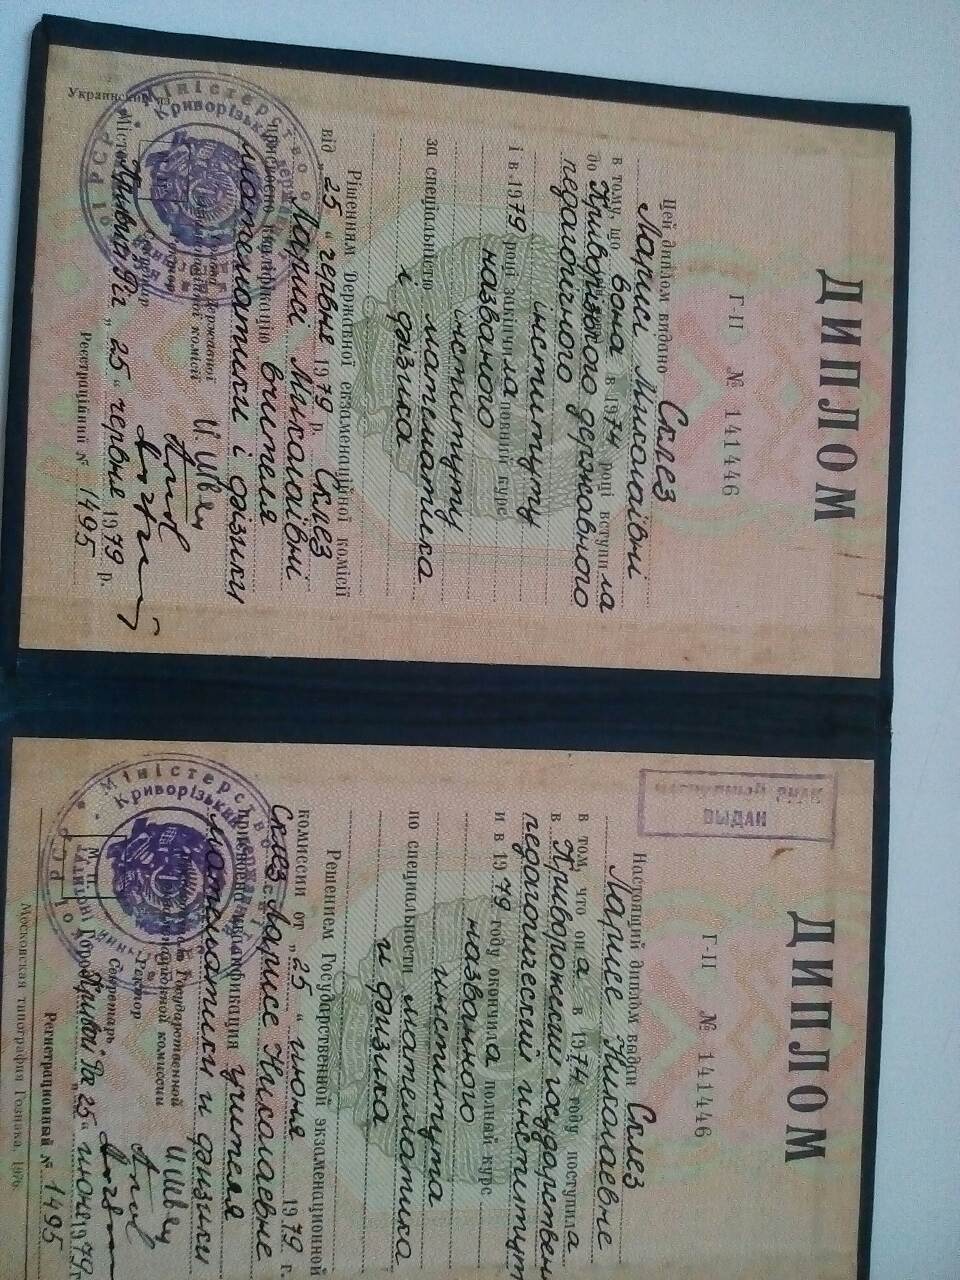 ДИПЛОМ
Г-II № 141446
Цей диплом видано Склез
Ларисі Миколаївні
в тому, що вона в 1974 році вступила
до Криворізького державного
педагогічного інституту
і в 1979 році закінчила повний курс
названого інституту
за спеціальністю математика
і фізика
Рішенням Державної екзаменаційної комісії
від „25“ червня 1979 р. Склез
Ларисі Миколаївні
присвоєно кваліфікацію вчителя
математики і фізики
Державної
екзаменаційної комісії
Ректор
Місто Кривий Ріг „25“ червня 1979 р.
Реєстраційний № 1495
Міністерство
Криворізький
ДИПЛОМ
Г-II № 141446
ВЫДАН
Настоящий диплом выдан Склез
Ларисе Николаевне
в том, что она в 1974 году поступила
в Криворожский государствен
педагогический институт
и в 1979 году окончила полный курс
названного института
по специальности математика
и физика
Решением Государственной экзаменационной
комиссии от „25“ июня 1979 г.
Склез Ларисе Николаевне
присвоена квалификация учителя
математики и физики
Государственной
экзаменационной комиссии
Ректор
М. П.
Секретарь
Город Кривой Рог „25“ июня 1979 г.
Регистрационный № 1495
Московская типография Гознака. 1976.
Міністерство
Криворізький